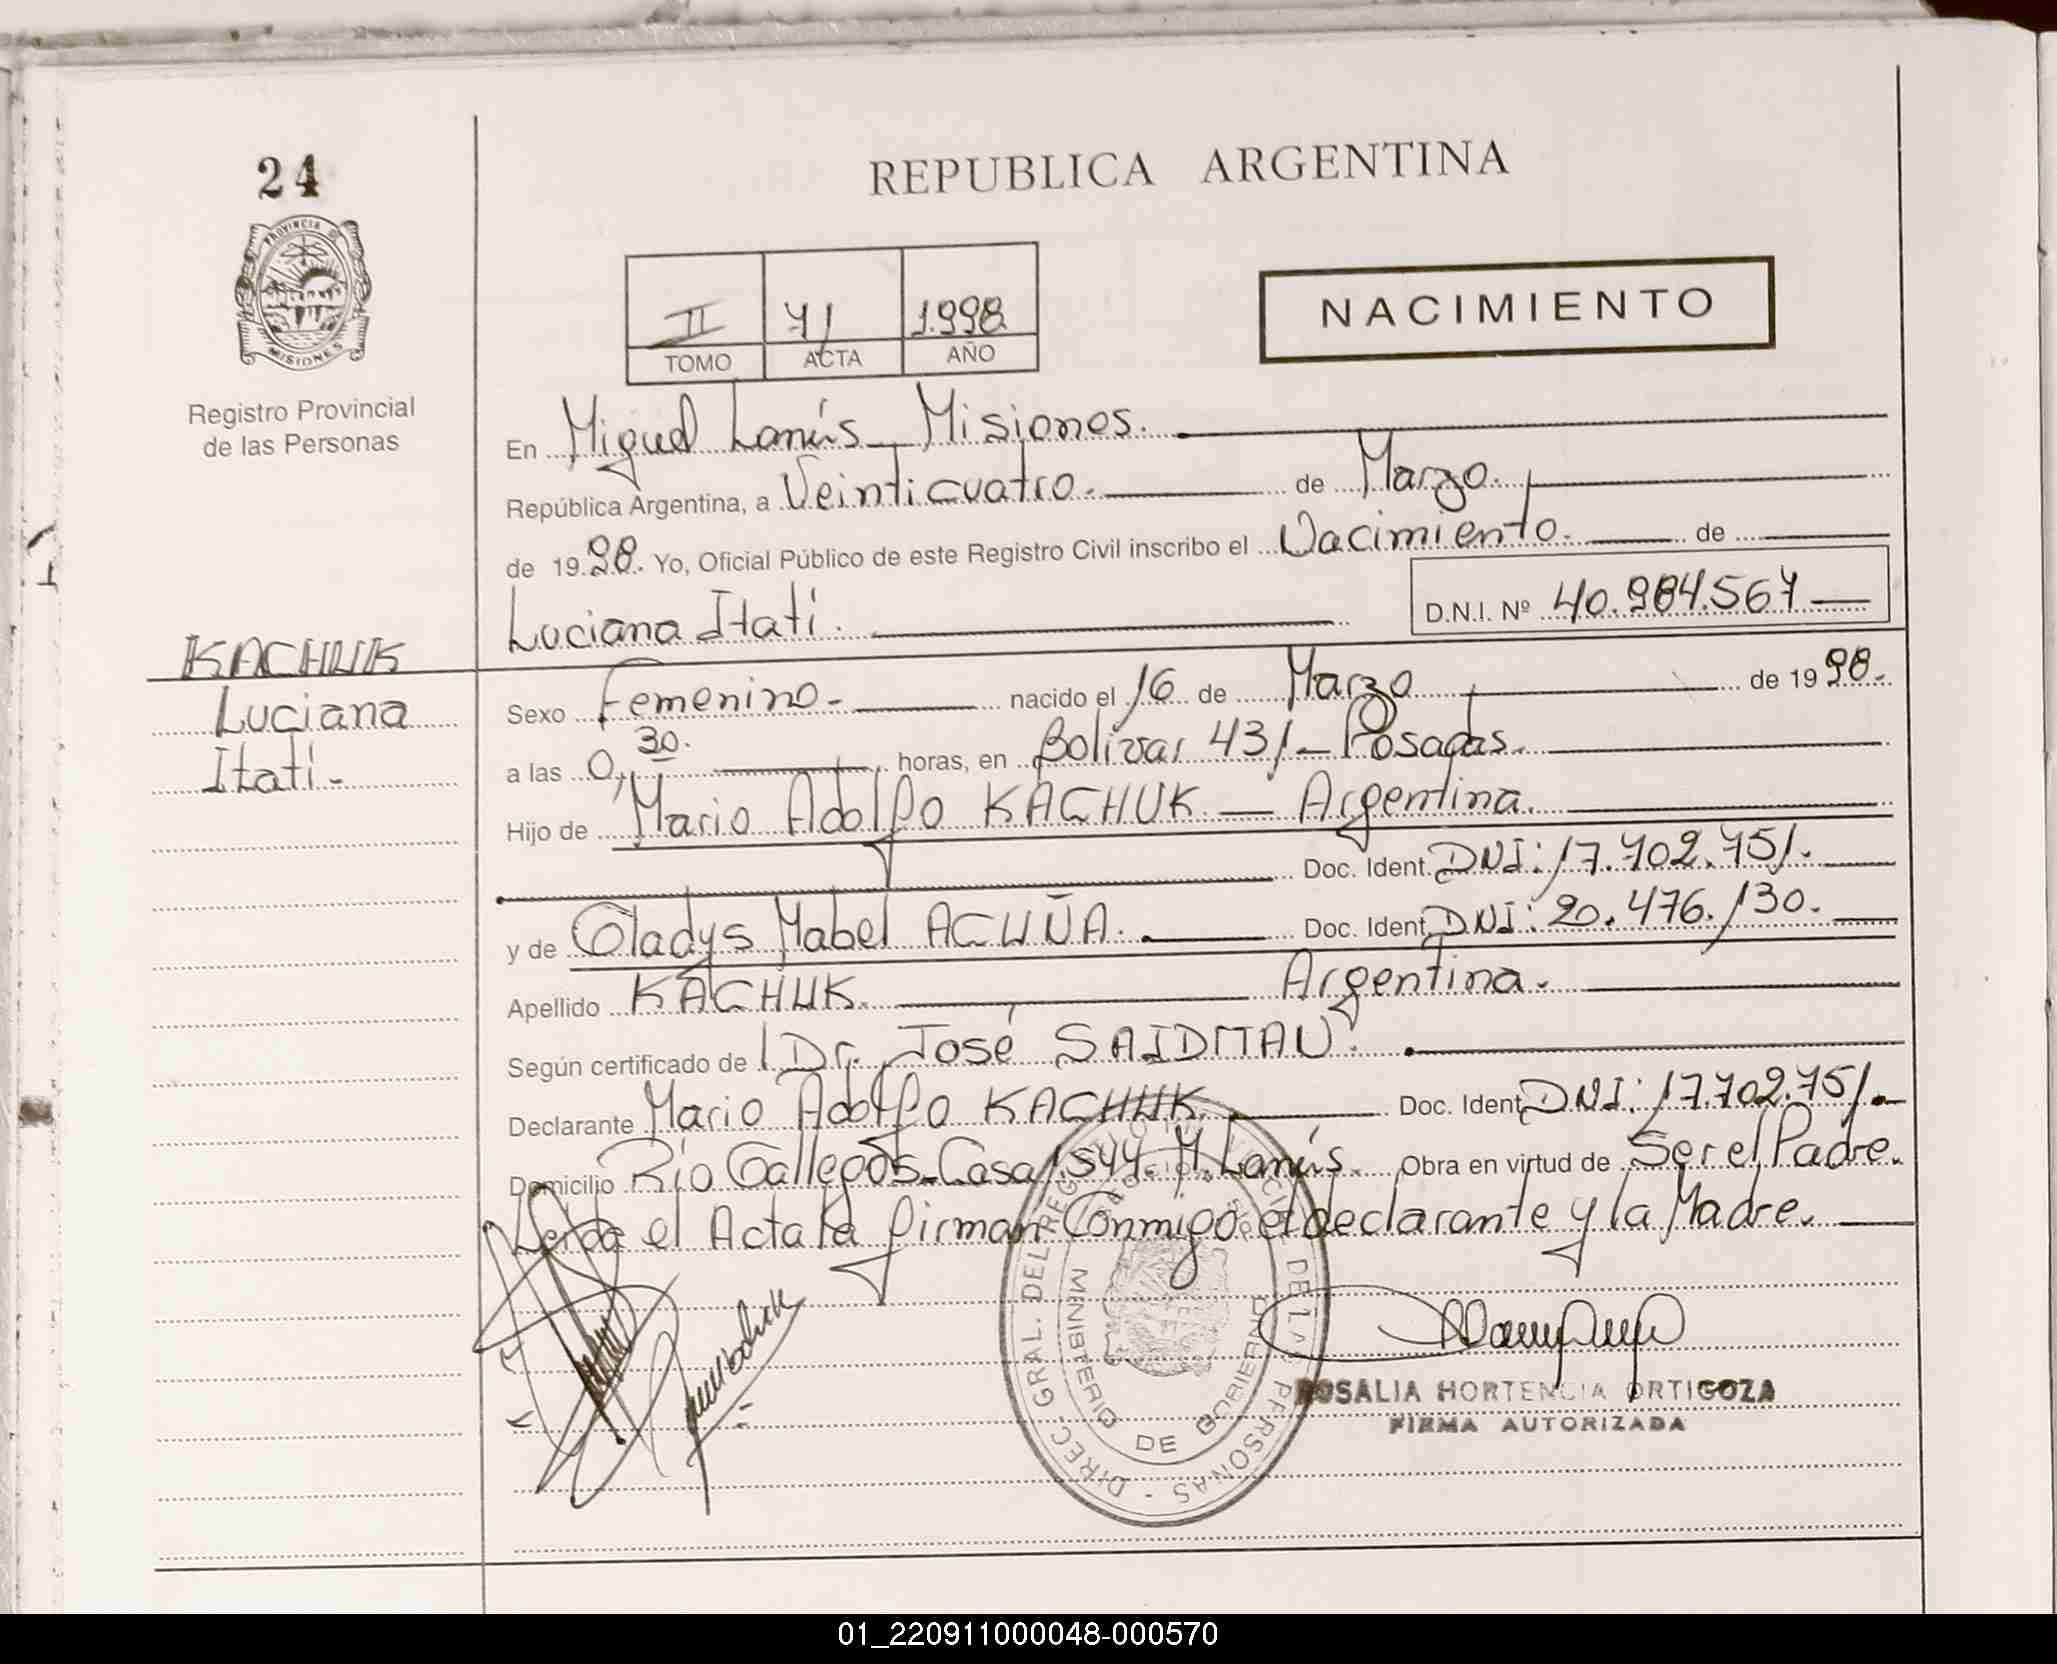 24
REPUBLICA ARGENTINA
PROVINCIA DE
MISIONES
Registro Provincial
de las Personas
II 71 1.998
TOMO ACTA AÑO
NACIMIENTO
En Miguel Lanús - Misiones.
República Argentina, a Veinticuatro. de Marzo.
de 1998. Yo, Oficial Público de este Registro Civil inscribo el Nacimiento. de
Luciana Itatí. D.N.I. Nº 40.984.567
KACHUK
Luciana
Itatí.-
Sexo Femenino.- nacido el 16 de Marzo de 1998.
a las 0,30. horas, en Bolívar 431.- Posadas.
Hijo de Mario Adolfo KACHUK. — Argentina.
Doc. Ident. DNI: 17.702.751.
y de Gladys Mabel ACUÑA. Doc. Ident. DNI: 20.476.130.
Apellido KACHUK. Argentina.
Según certificado de Dr. José SAIDMAN.
Declarante Mario Adolfo KACHUK. Doc. Ident. DNI: 17.702.751.-
Domicilio Río Gallegos-Casa 1.544. M. Lanús. Obra en virtud de Ser el Padre.
Leída el Acta la firman Conmigo el declarante y la Madre.
DIREC. GRAL. DEL REGISTRO DE LAS PERSONAS
MINISTERIO DE GOBIERNO
ROSALIA HORTENCIA ORTIGOZA
FIRMA AUTORIZADA
01_220911000048-000570